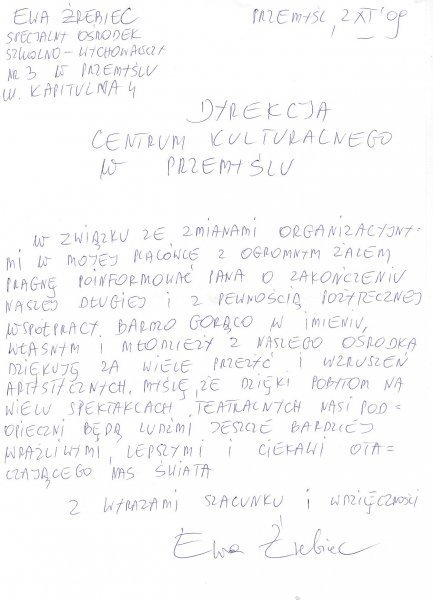 EWA ŹREBIEC
PRZEMYŚL, 2 XI '09
SPECJALNY OŚRODEK
SZKOLNO-WYCHOWAWCZY
NR 3 W PRZEMYŚLU
UL. KAPITULNA 4
DYREKCJA
CENTRUM KULTURALNEGO
W PRZEMYŚLU
W ZWIĄZKU ZE ZMIANAMI ORGANIZACYJNY-
MI W MOJEJ PLACÓWCE Z OGROMNYM ŻALEM
PRAGNĘ POINFORMOWAĆ PANA O ZAKOŃCZENIU
NASZEJ DŁUGIEJ I Z PEWNOŚCIĄ POŻYTECZNEJ
WSPÓŁPRACY. BARDZO GORĄCO W IMIENIU,
WŁASNYM I MŁODZIEŻY Z NASZEGO OŚRODKA
DZIĘKUJĘ ZA WIELE PRZEŻYĆ I WZRUSZEŃ
ARTYSTYCZNYCH. MYŚLĘ, ŻE DZIĘKI POBYTOM NA
WIELU SPEKTAKLACH TEATRALNYCH NASI POD=
OPIECZNI BĘDĄ LUDŹMI JESZCZE BARDZIEJ
WRAŻLIWYMI, LEPSZYMI I CIEKAWI OTA=
CZAJĄCEGO NAS ŚWIATA
Z WYRAZAMI SZACUNKU I WDZIĘCZNOŚCI
Ewa Źrebiec